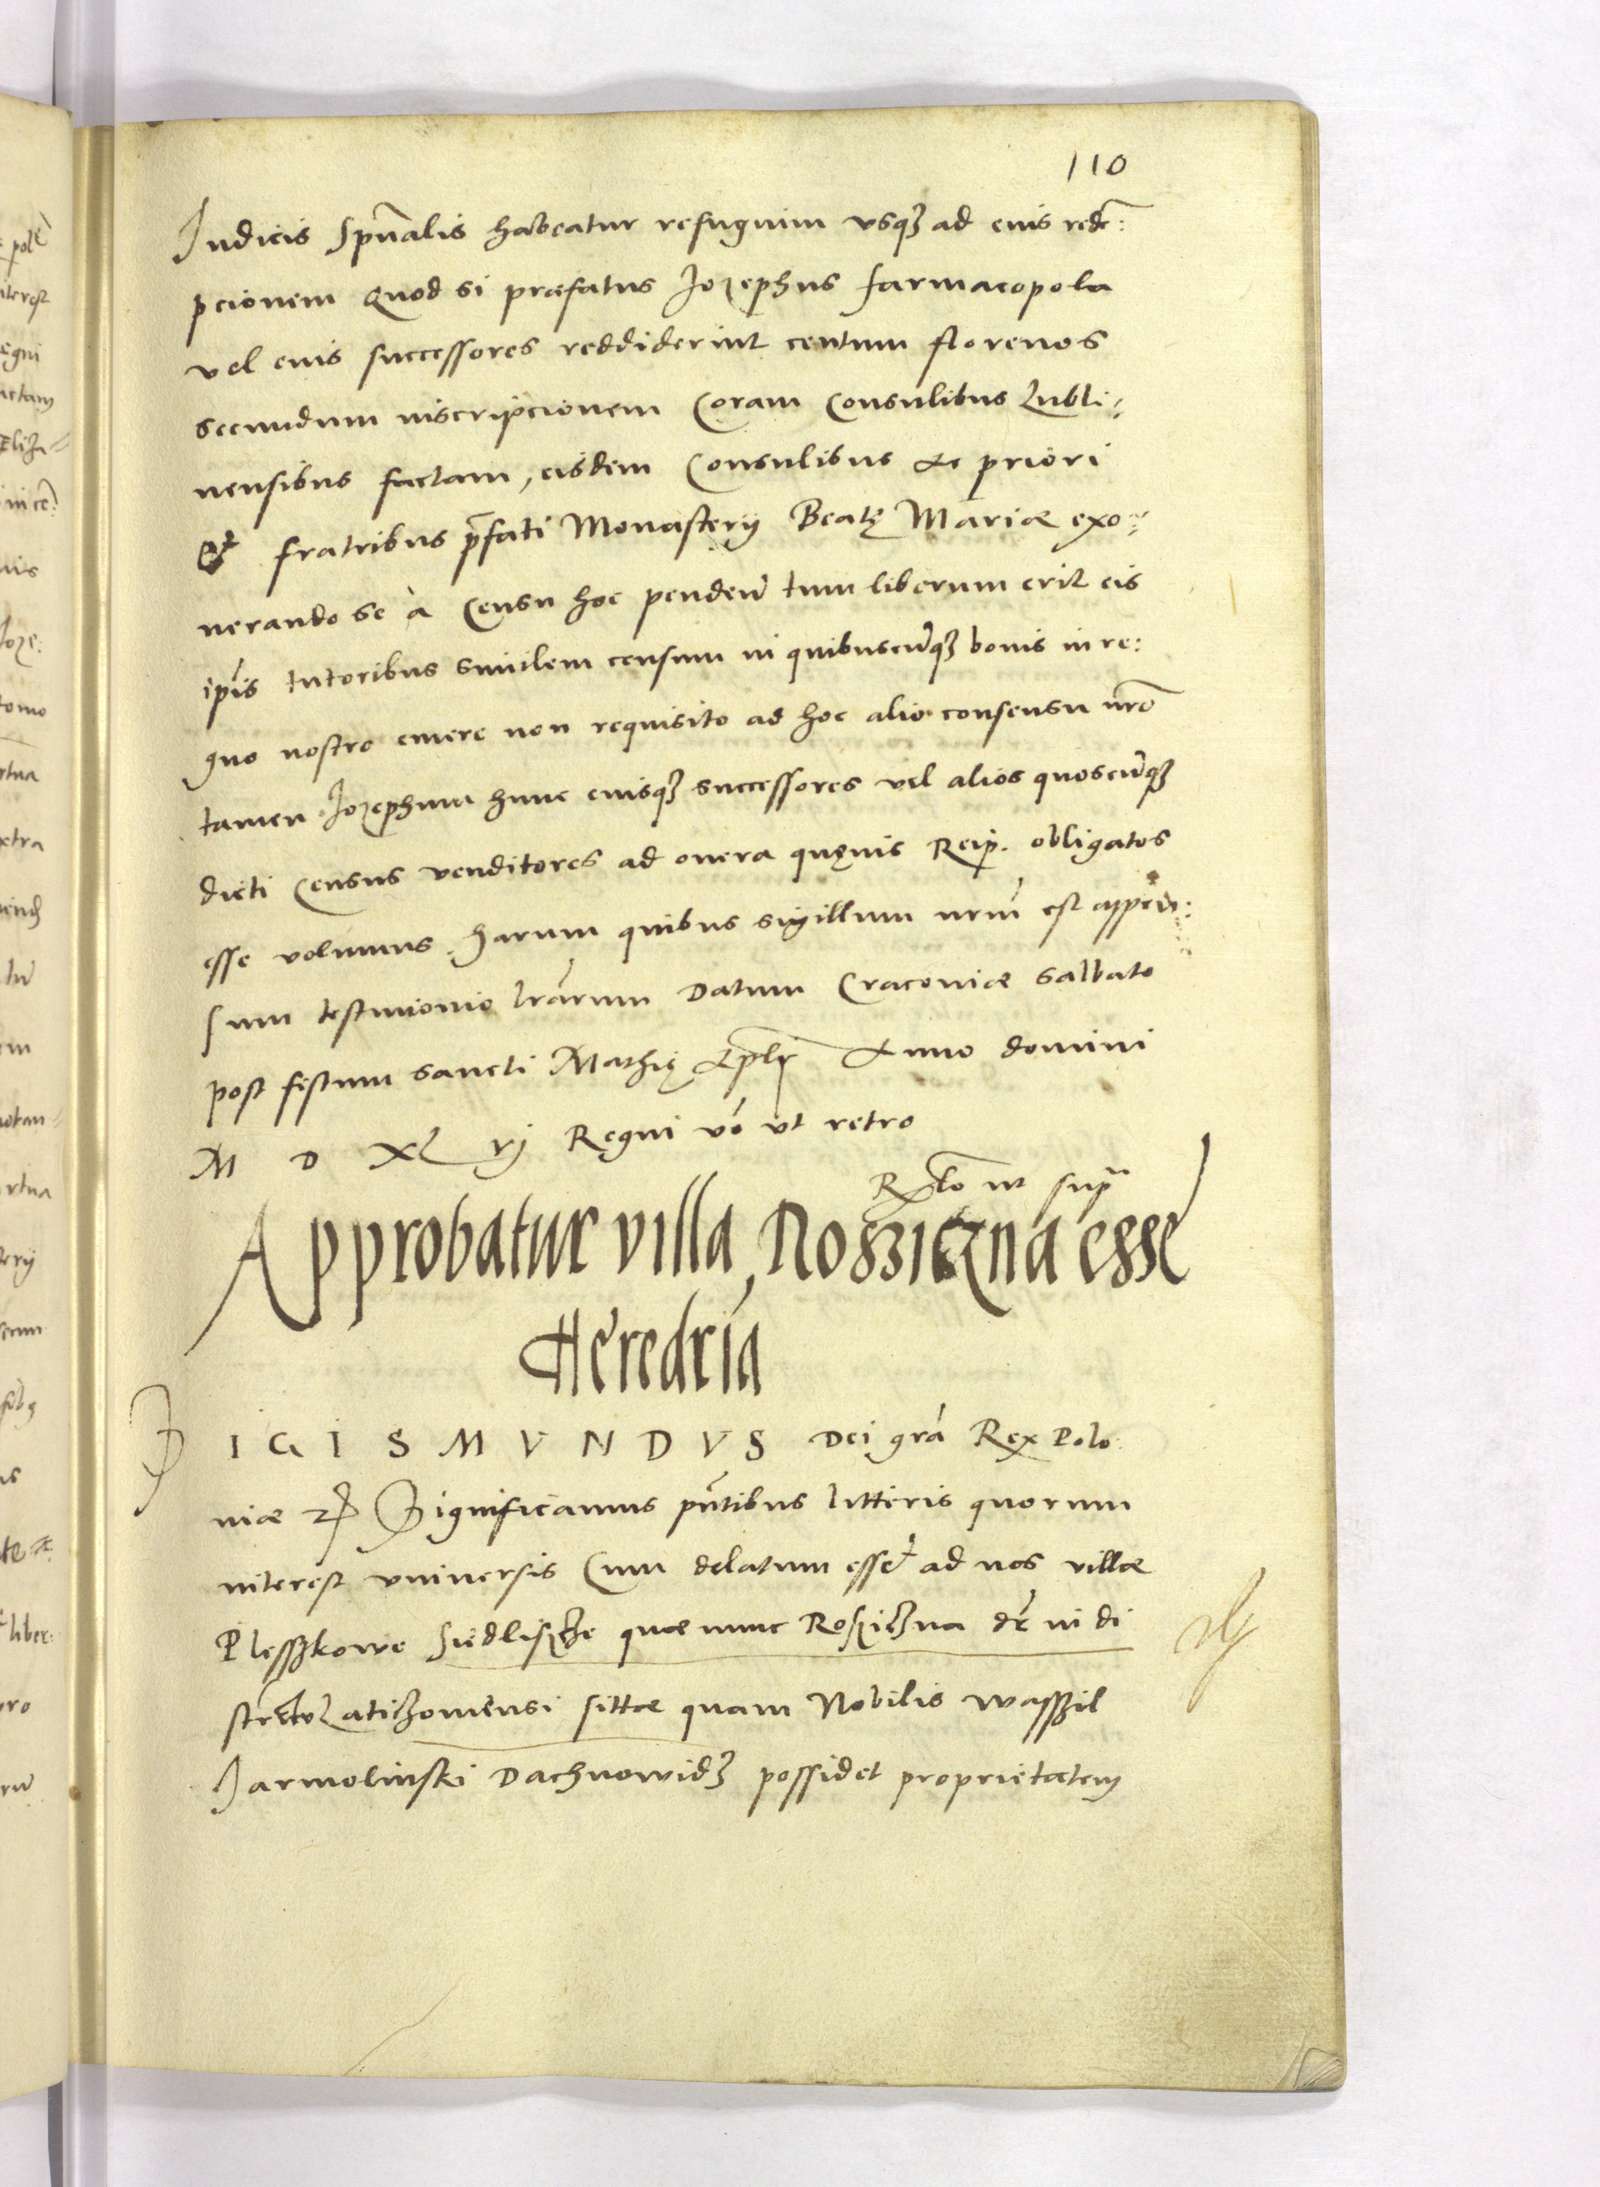 110
Iudicis Spũalis habeatur refugium vsqꝫ ad eius redẽ:
pcionem Quod si præfatus Jozephus farmacopola
vel euis successores reddiderint centum florenos
secundum inscripcionem Coram Consulibus Lubli:
nensibus factam, eisdem Consulibus Ac priori
Et fratribus p̃fati Monastery Beatę Mariæ exo:
nerando se à Censu hoc pendeñ tum liberum erit eis
ip̃is tutoribus similem censum in quibuscũqꝫ bonis in re:
gno nostro emere non requisito ad hoc alio consensu nr̃o
tamen Jozephum hunc eiusqꝫ successores vel alios quoscũqꝫ
dicti Census venditores ad onera quęuis Reip. obligatos
esse volumus. Harum quibus sigillum nrm̃ est appen:
sum testimonio lrãrum Datum Cracouiæ Sabbato
post festum sancti Mathię Apl̃i Anno domini
M D XL vj Regni vō vt retro
Rĺtō ut supra
Approbatur villa Roszıczna esse
Heredria
SIGISMVNDVS Dei grã Rex Polo
niæ ꝛꝭ Significamus pñtibus litteris quorum
interest vniuersis Cum delatum esset ad nos villæ
Plesszkowe Siedlisꝫcze quæ nunc Rosziczna dr̃ in di
strictu Laticzouiensi sittæ quam Nobilis Wasszil
Jarmolinski Dachnowicz possidet proprietatem